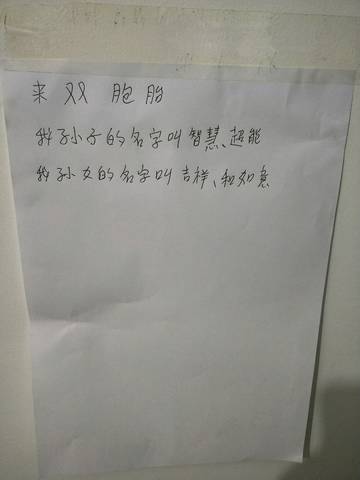 来双胞胎
我孙子的名字叫智慧、超能
我孙女的名字叫吉祥、和如意